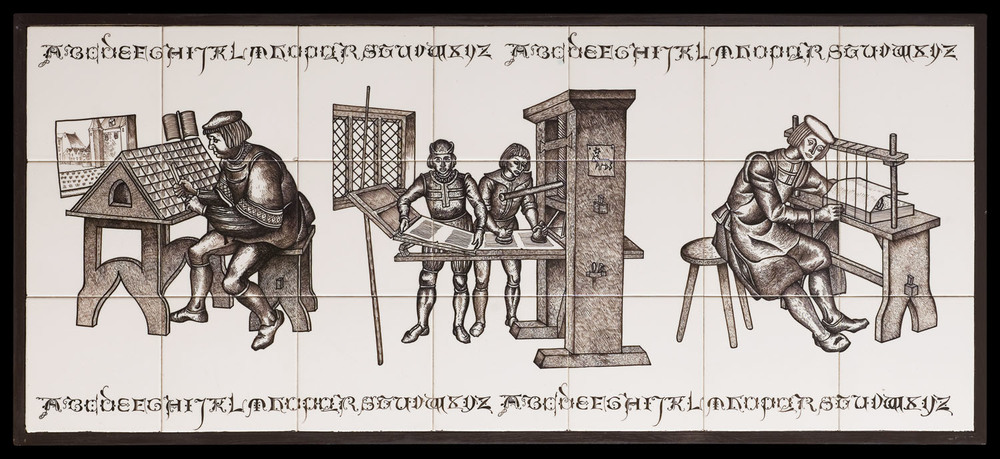 ABCDEFGHIJKLMNOPQRSTUVWXYZ ABCDEFGHIJKLMNOPQRSTUVWXYZ
ABCDEFGHIJKLMNOPQRSTUVWXYZ ABCDEFGHIJKLMNOPQRSTUVWXYZ